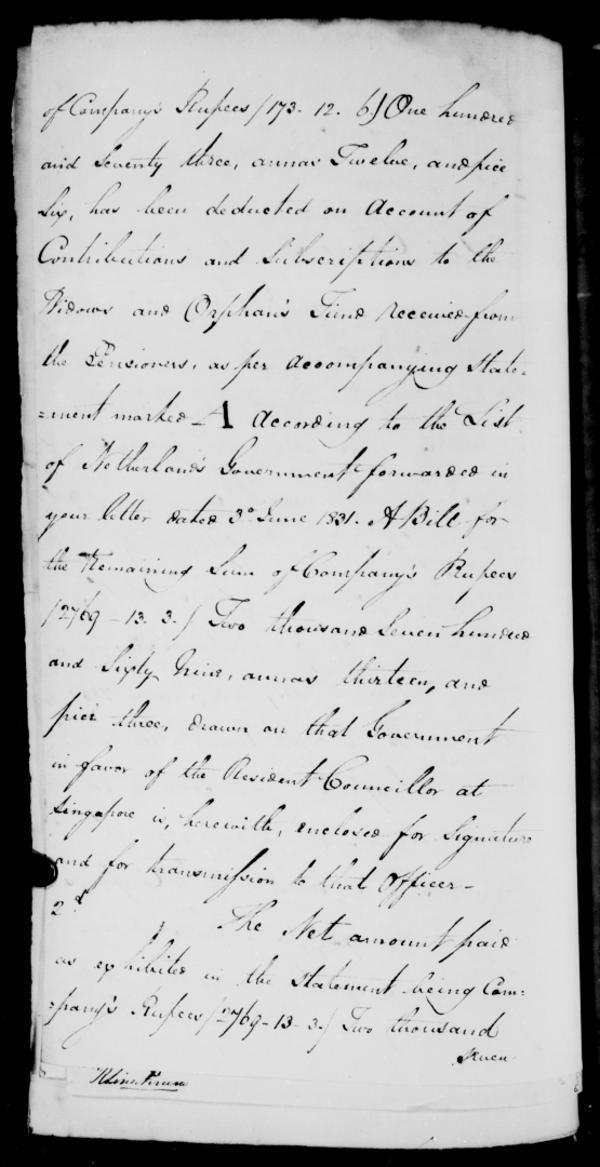 of Company's Rupees /173. 12. 6./ One hundred
and Seventy three, annas Twelve, and pice
Six, has been deducted on Account of
Contributions and Subscriptions to the
Widows and Orphan's Fund received from
the Pensioners, as per accompanying State-
=ment marked A According to the List
of Netherland's Government forwarded in
your letter dated 3d June 1831. A Bill for
the Remaining Sum of Company's Rupees
/2769 - 13. 3./ Two thousand Seven hundred
and Sixty Nine, annas thirteen, and
pice three, drawn on that Government
in favor of the Resident Councillor at
Singapore is, herewith, enclosed for Signature
and for transmission to that Officer -
2d. The Net amount paid
as exhibited in the Statement being Com=
=pany's Rupees /2769 - 13 - 3./ Two thousand
Seven